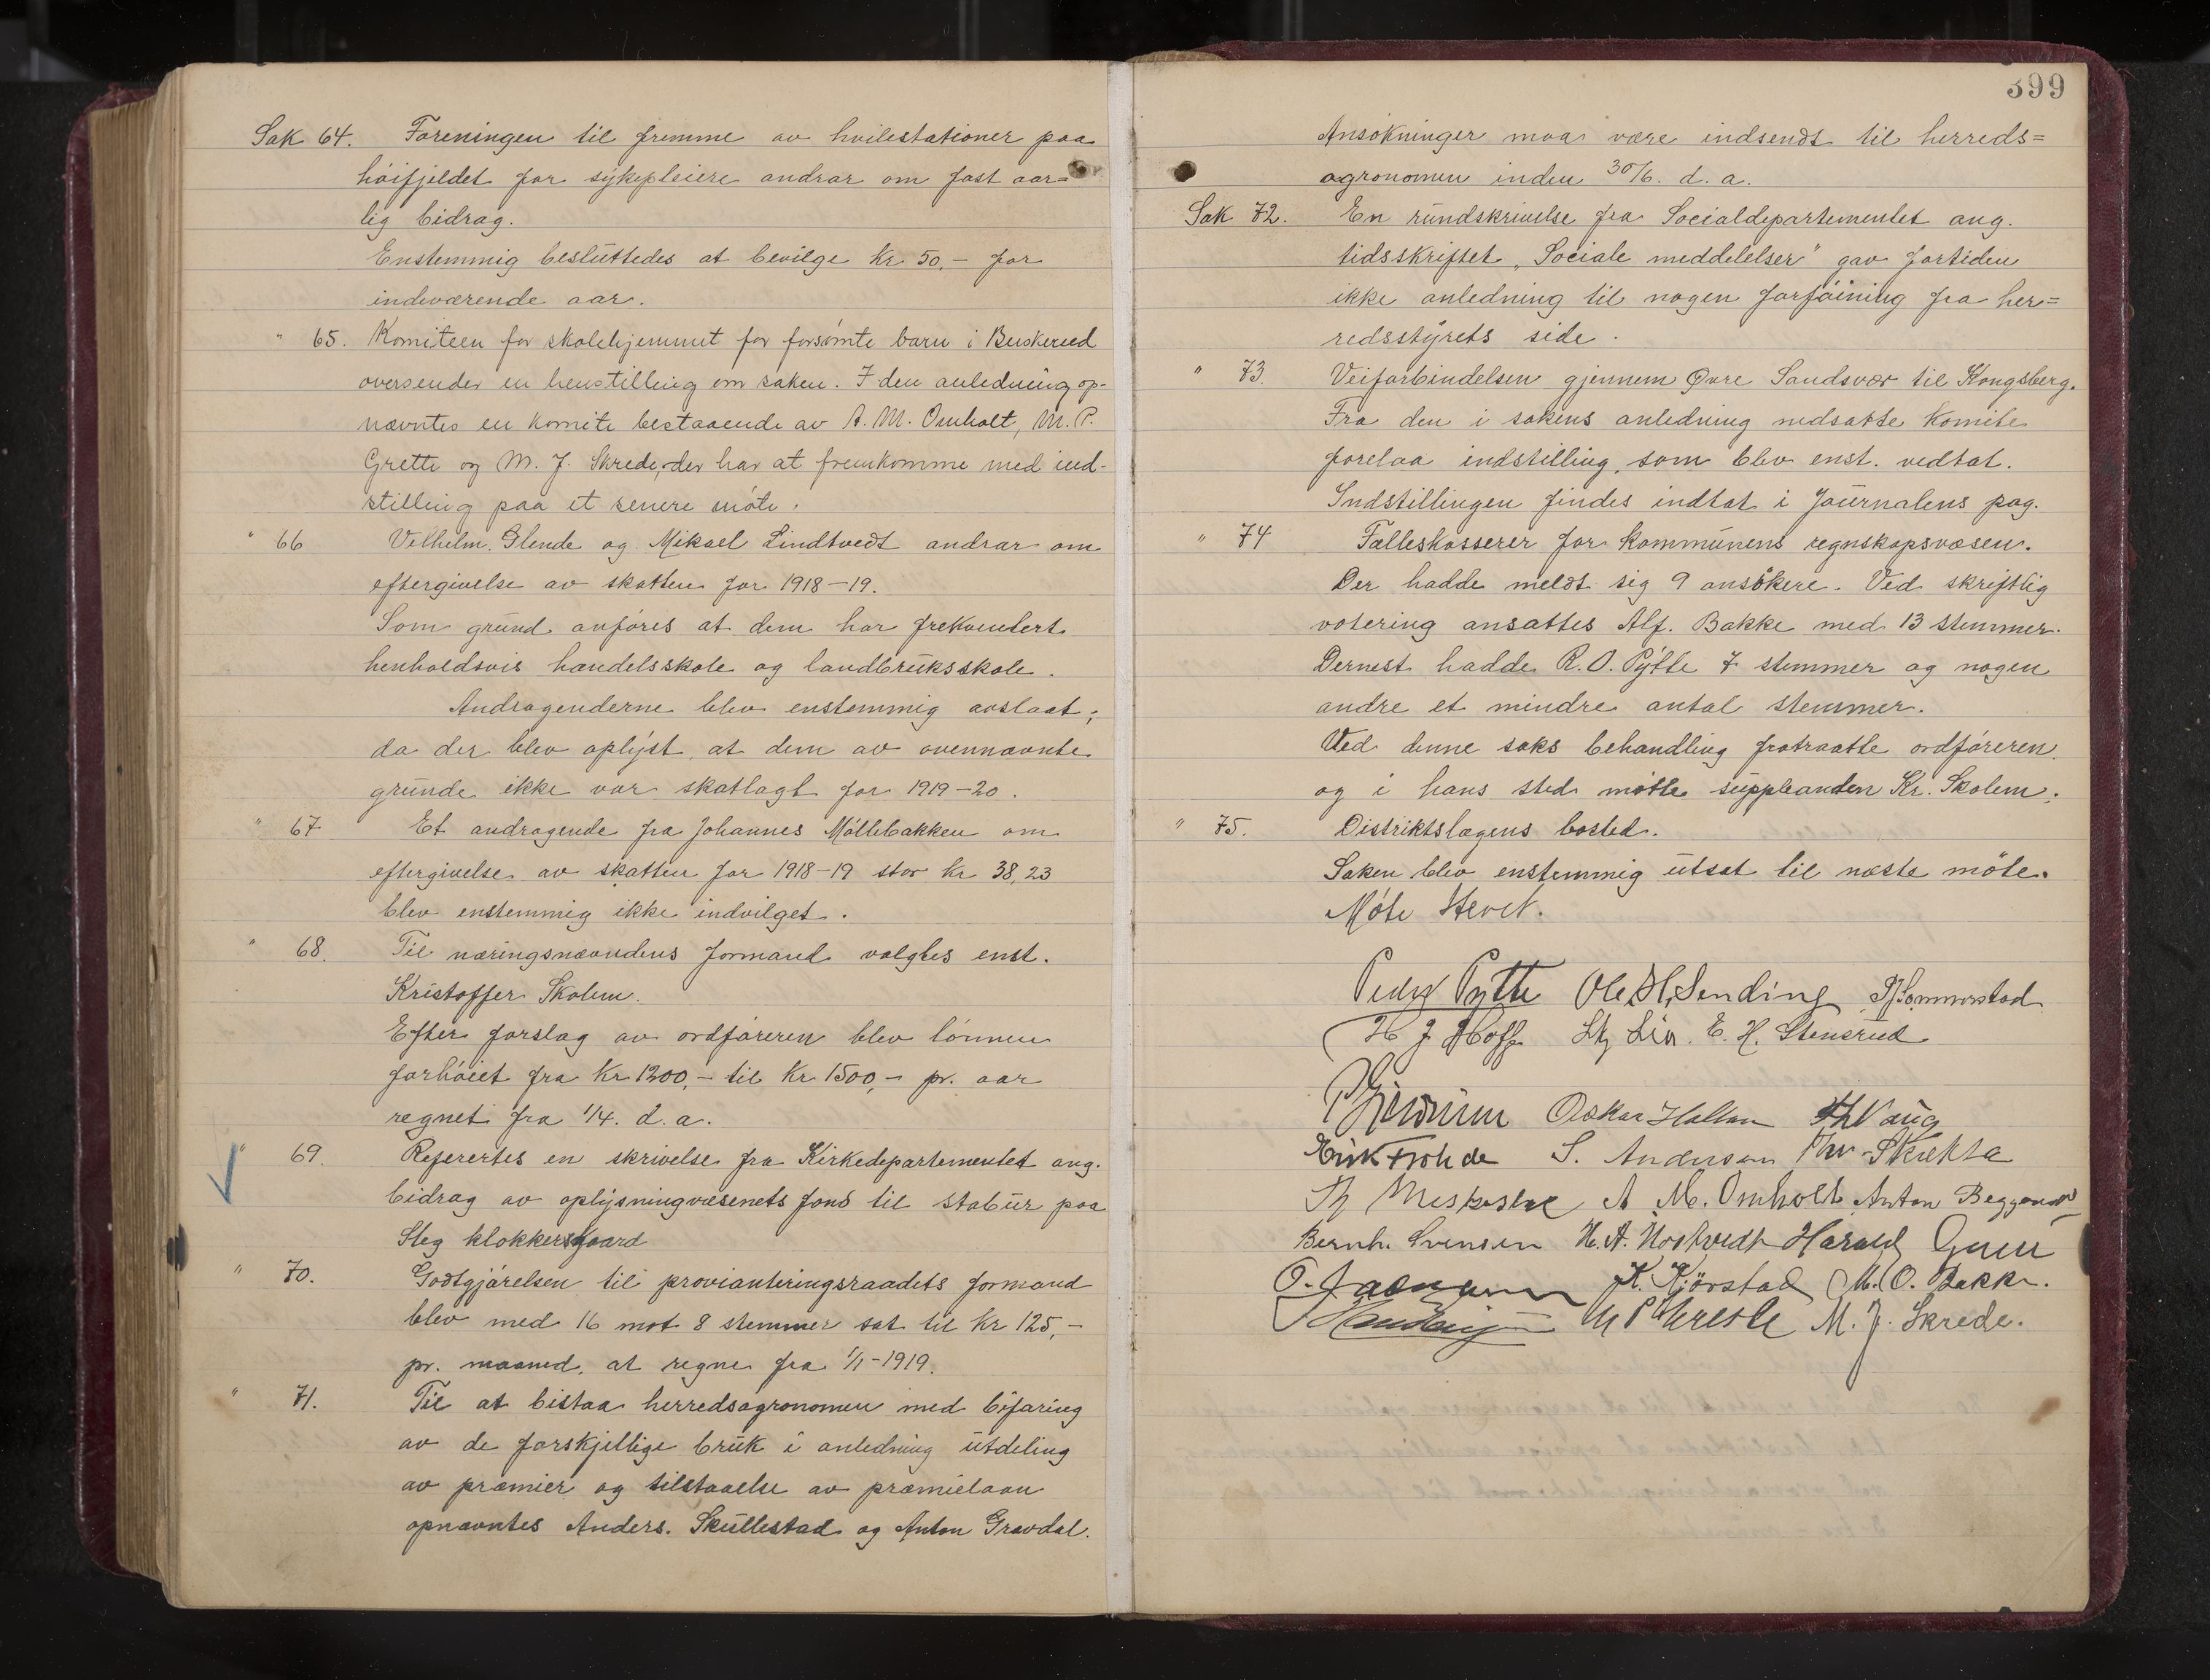 Sak 64. Foreningen til fremme av hvilestationer paa
höifjeldet for sykepleiere andrar om fast aar=
lig bidrag.
Enstemmig besluttedes at bevilge Kr 50,- for
indeværende aar.
" 65. Komiteen for skolehjemmet for forsömte barn i Buskerud
oversender en henstilling om saken. I den anledning op-
nævntes en komite bestaaende av A. M. Omholt, M. P.
Grette og M. J. Skrede, der har at fremkomme med ind-
stilling paa et senere möte.
" 66 Vilhelm Glende og Mikael Lindtvedt andrar om
eftergivelse av skatten for 1918-19.
Som grund anföres at dem har frekventert
henholdsvis handelsskole og landbruksskole.
Andragenderne blev enstemmig avslaat,
da der blev oplyst, at dem av ovennævnte
grunde ikke var skatlagt for 1919-20.
" 67 Et andragende fra Johannes Möllebakken om
eftergivelse av skatten for 1918-19 stor kr 38,23
blev enstemmig ikke indvilget.
" 68. Til næringsnævndens formand valgtes enst.
Kristoffer Skolem.
Efter forslag av ordföreren blev lönnen
forhöiet fra Kr 1200,- til Kr 1500,- pr. aar
regnet fra 1/4. d. a.
" 69. Referertes en skrivelse fra Kirkedepartementet ang.
bidrag av oplysningvæsenets fond til stabur paa
Steg klokkergaard
" 70. Godtgjörelsen til provianteringsraadets formand
blev med 16 mot 8 stemmer sat til Kr 125,-
pr. maaned, at regne fra 1/1-1919.
" 71. Til at bistaa herredsagronomen med bifaring
av de forskjellige bruk i anledning utdeling
av præmier og tilstaaelse av præmielaan
opnævntes Anders Skullestad og Anton Gravdal.
399
Ansökninger maa være indsendt til herreds=
agronomen inden 30/6. d. a.
Sak 72. En rundskrivelse fra Socialdepartementet ang.
tidsskriftet "Sociale meddelelser" gav fortiden
ikke anledning til nogen forföining fra her=
redsstyrets side.
" 73. Veiforbindelsen gjennem Øvre Sandsvær til Kongsberg.
Fra den i sakens anledning nedsatte Komite
forelaa indstilling, som blev enst. vedtat.
Indstillingen findes indtat i Journalens pag.
" 74 Fælleskasserer for Kommunens regnskapsvæsen.
Der hadde meldt sig 9 ansökere. Ved skriftlig
votering ansattes Alf. Bakke med 13 stemmer.
Dernest hadde R. O. Pytte 7 stemmer og nogen
andre et mindre antal stemmer.
Ved denne saks behandling fratraatte ordföreren
og i hans sted mötte suppleanden Kr. Skolem.
" 75. Distriktslægens bosted.
Saken blev enstemmig utsat til næste möte.
Möte Hevet.
Peder Pytte Ole H. Sending P Sommerstad
H J Hoff Lia. E. H. Stensrud
Oskar Holtan Th Vaug
Erik Frohde S. Andersen
Th A M. Omholt Anton
Bernh. Svensen H. A. Nostvedt Harald
K. Kjörstad M. O. Bakke.
M P Grette M. J. Skrede.